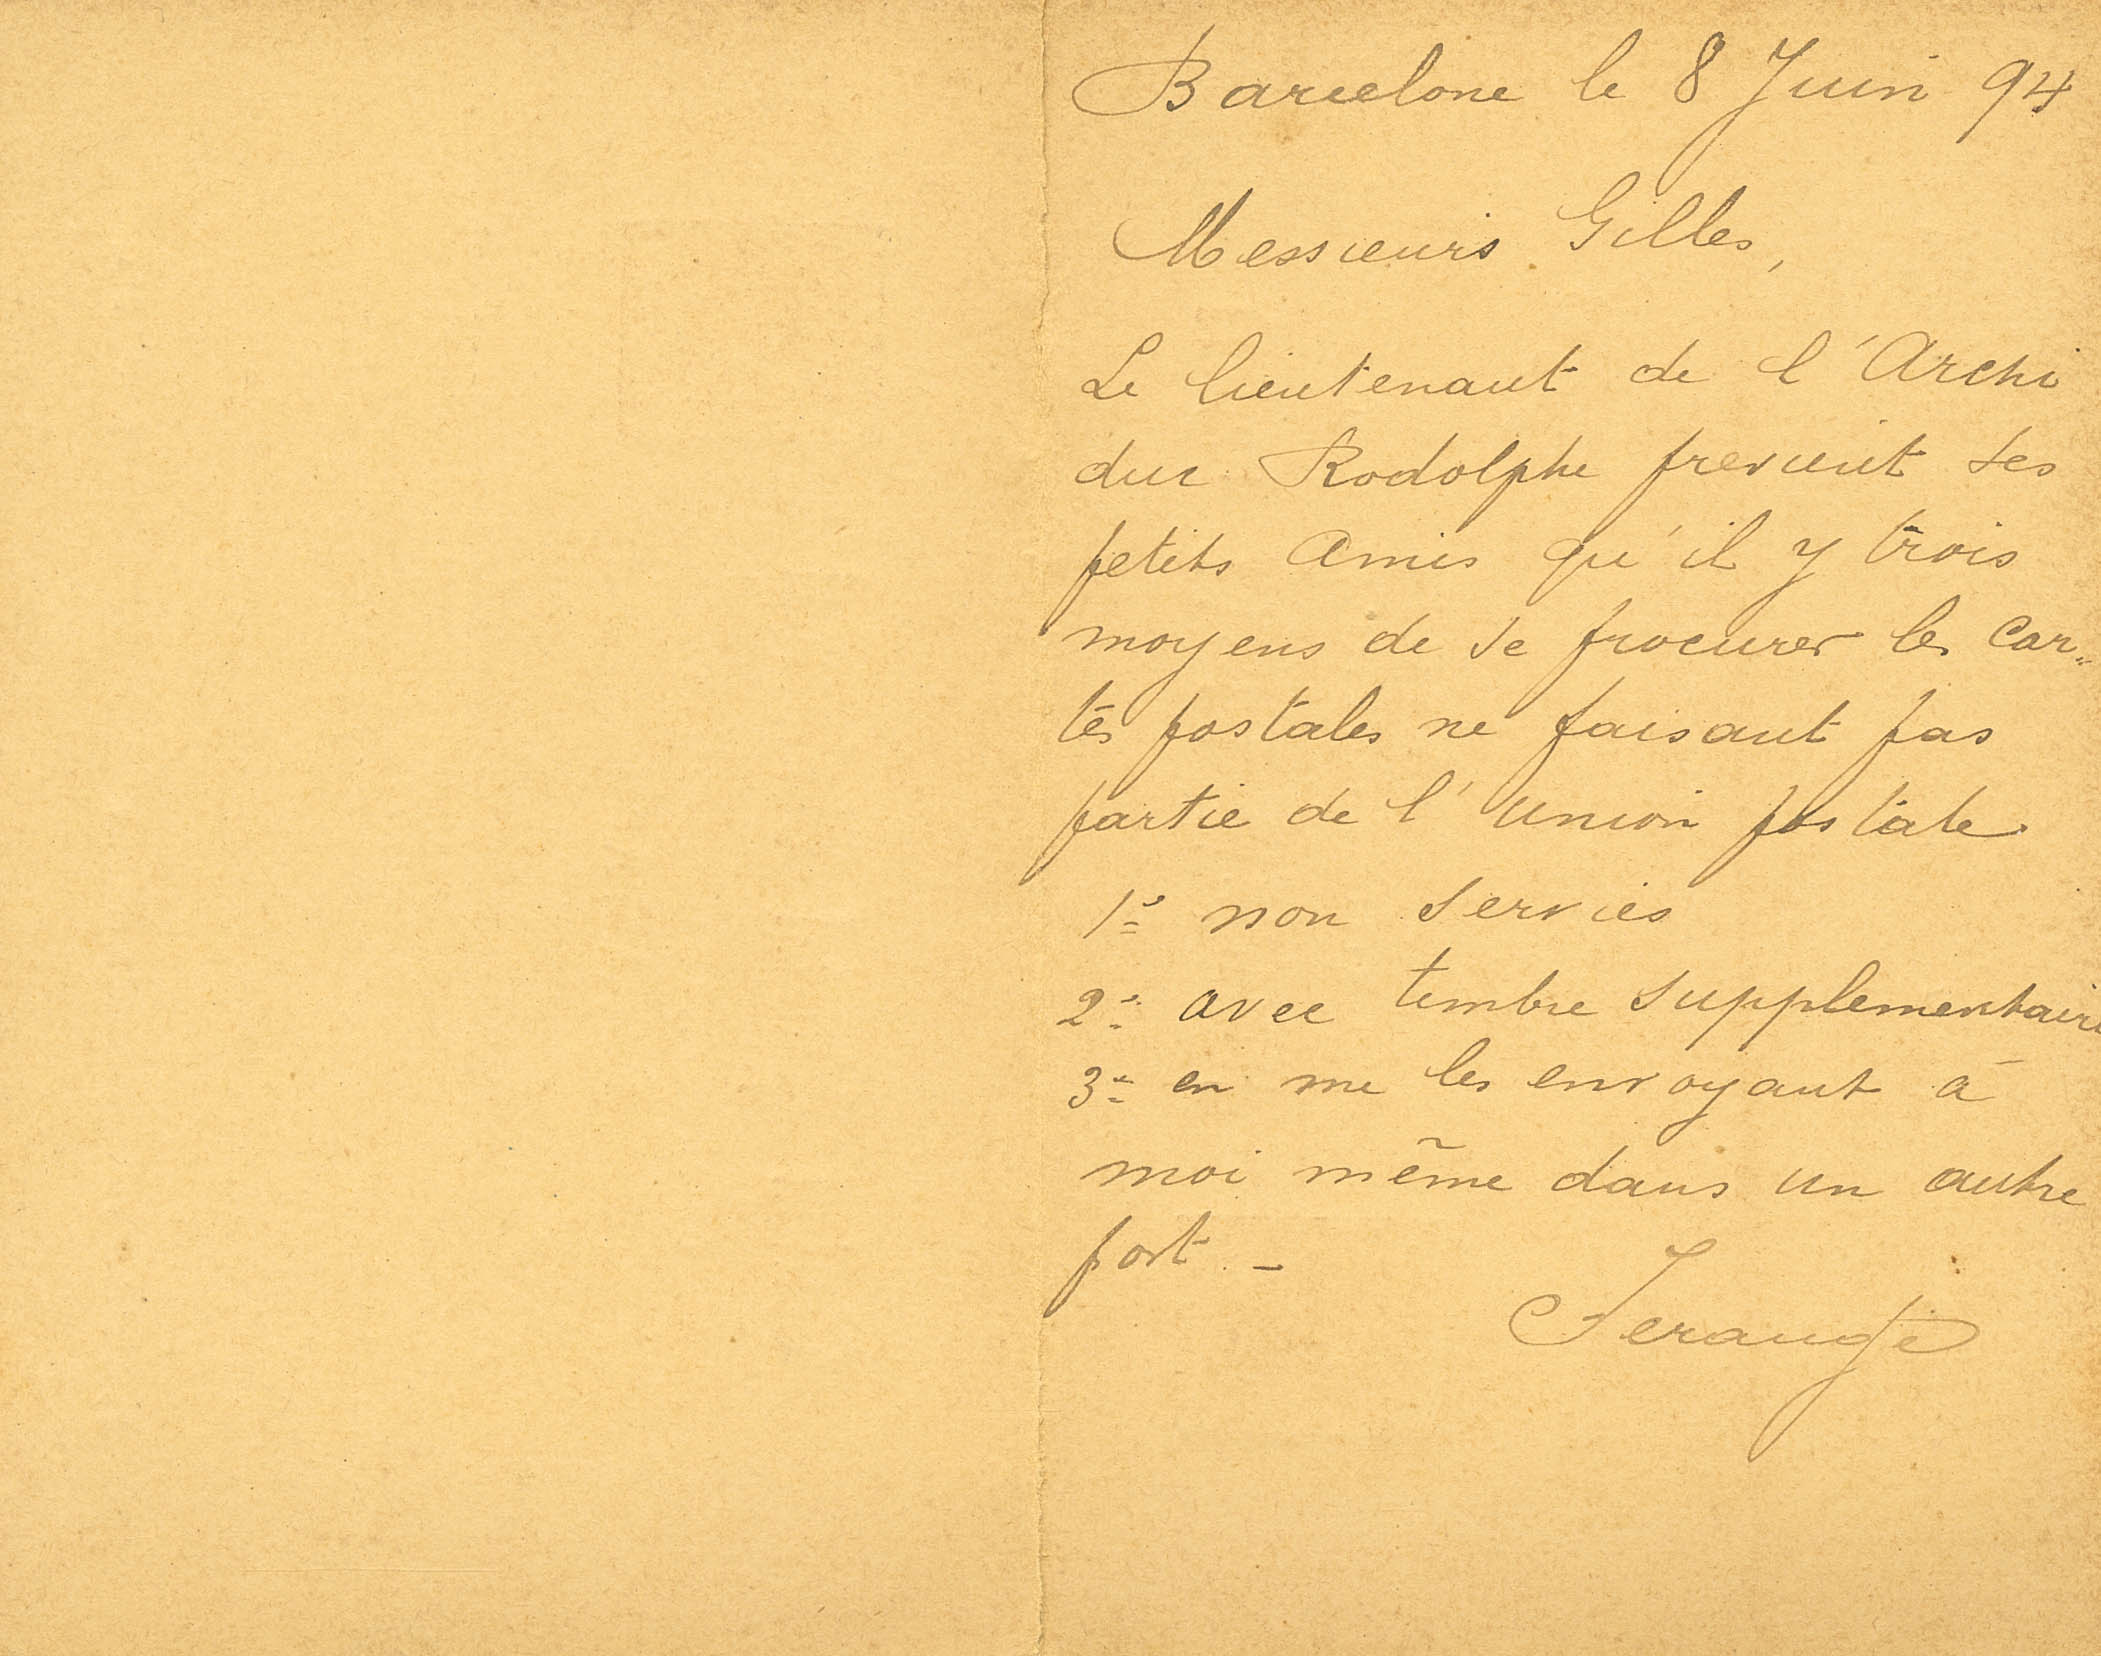 Barcelone le 8 Juin 94
Messieurs Gilles,
Le lieutenant de l'Archi
duc Rodolphe previent ses
petits Amis qu'il y trois
moyens de se procurer les Car=
tes postales ne faisant pas
partie de l'Union postale
1º non servies
2º avec timbre supplementaire
3º en me les envoyant à
moi même dans un autre
port. –